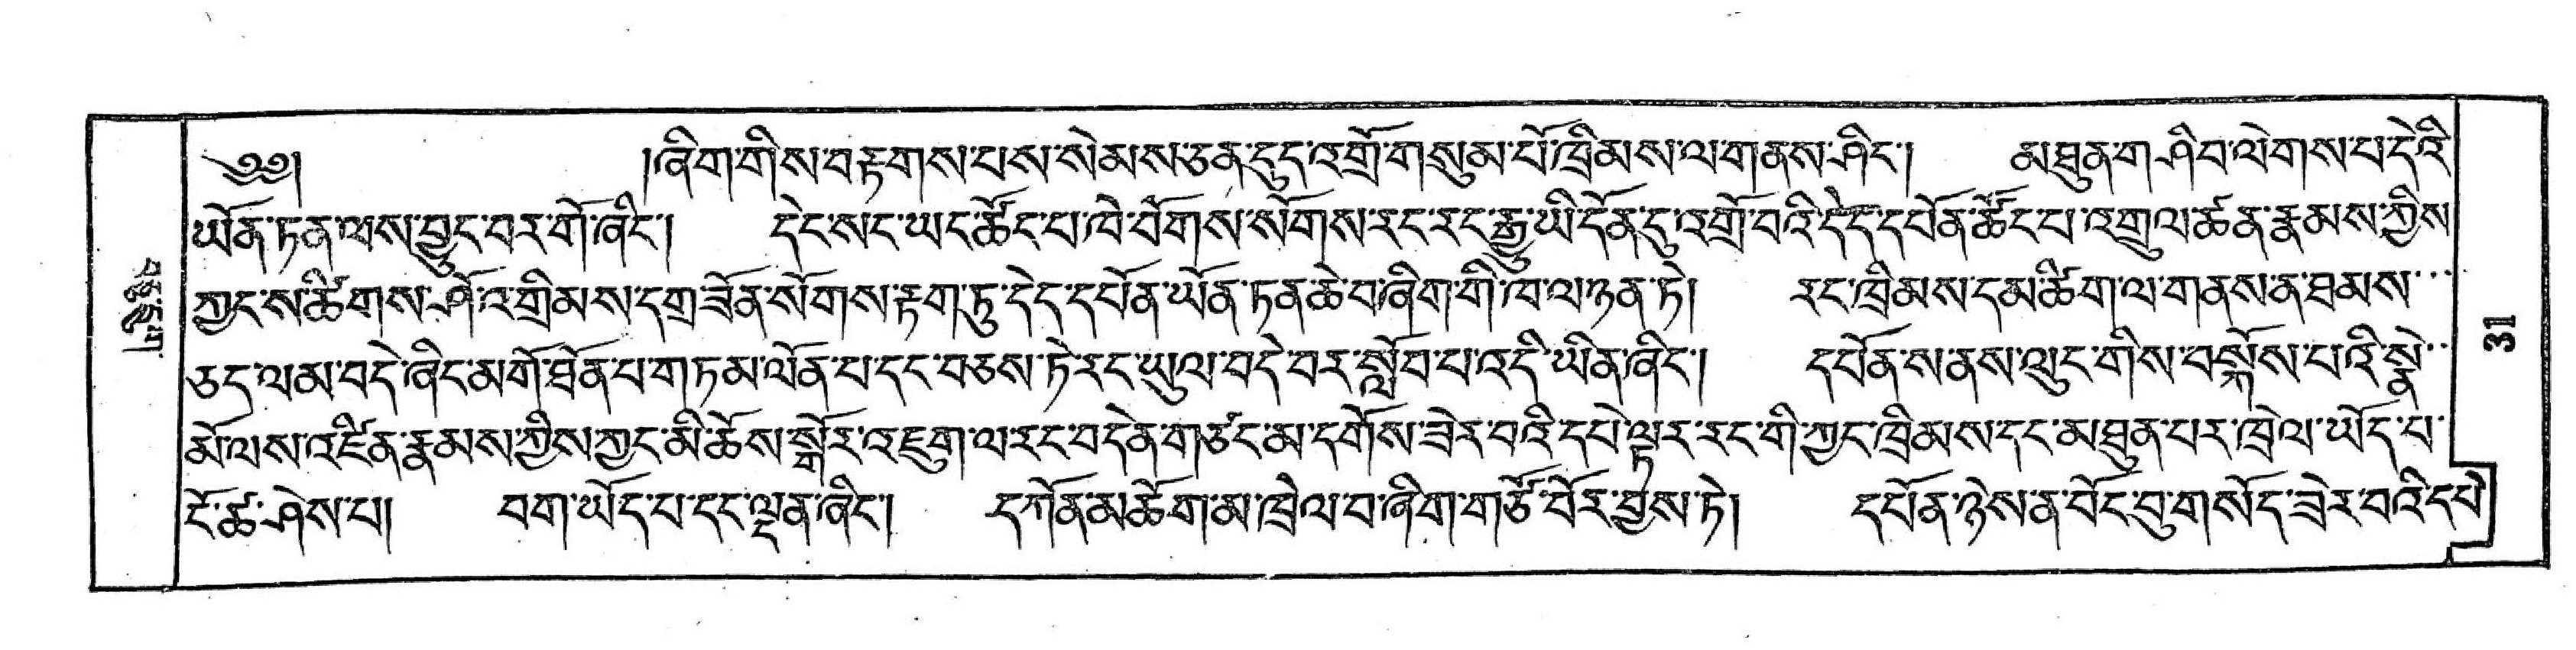 ༄༅། །ཞིག་གིས་བརྟགས་པས་སེམས་ཅན་དུད་འགྲོ་གསུམ་པོ་ཁྲིམས་ལ་གནས་ཤིང་། མཐུན་ག་ཤིབ་ལེགས་པ་དེའི
ཡོན་ཏན་ལས་བྱུང་བར་གོ་ཞིང་། དེང་སང་ཡང་ཚོང་པ་ཁེ་བོགས་སོགས་རང་རང་རྒྱུ་ཡི་དོན་དུ་འགྲོ་བའི་དེད་དཔོན་ཚོང་པ་འགྲུལ་ཚན་རྣམས་ཀྱིས
ཀྱང་ས་ཚིགས་ཤོ་འགྲིམས་དགྲ་ཟོན་སོགས་རྟག་ཏུ་དེད་དཔོན་ཡོན་ཏན་ཆེ་བ་ཞིག་གི་ཁ་ལ་ཉན་ཏེ། རང་ཁྲིམས་དམ་ཚིག་ལ་གནས་ན་ཐམས་
ཅད་ལམ་བདེ་ཞིང་མགོ་ཐོན་པ་གཏམ་ལོན་པ་དང་བཅས་ཏེ་རང་ཡུལ་བདེ་བར་སློབ་པ་འདི་ཡིན་ཞིང་། དཔོན་ས་ནས་ལུང་གིས་བསྐོས་པའི་སྣེ་
མོ་ལས་འཛིན་རྣམས་ཀྱིས་ཀྱང་མི་ཆོས་སྒོར་འཇུག་ལ་རང་བདེན་གཙང་མ་དགོས་ཟེར་བའི་དཔེ་ལྟར་རང་གི་ཀྱང་ཁྲིམས་དང་མཐུན་པར་ཁྲེལ་ཡོད་པ་
ངོ་ཚ་ཤེས་པ། བག་ཡོད་པ་དང་ལྡན་ཞིང་། དཀོན་མཆོག་མ་ཁྲེལ་བ་ཞིག་གཙོ་བོར་བྱས་ཏེ། དཔོན་ཉེས་ན་བོང་བུ་གསོད་ཟེར་བའི་དཔེ